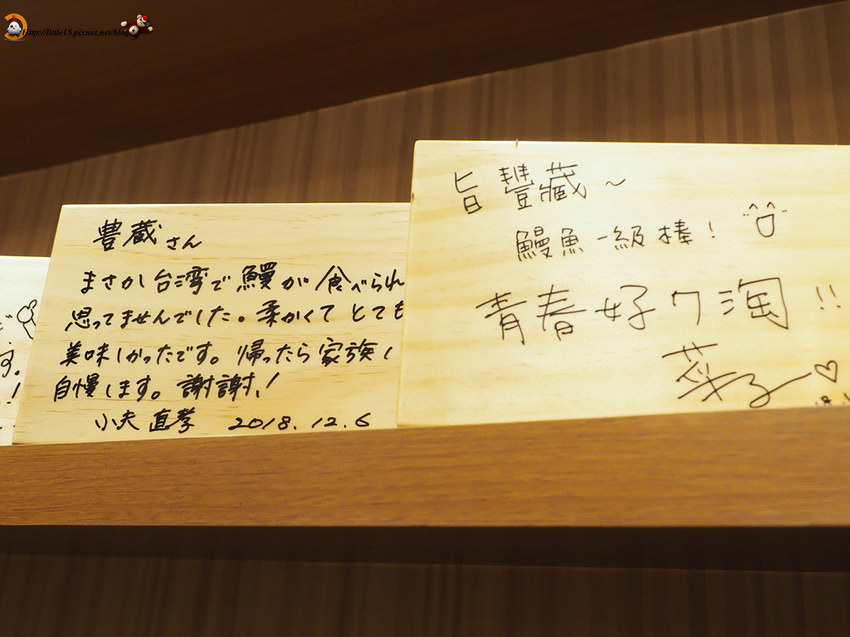 http://little15.pixnet.net/blog
豊蔵さん
まさか台湾で鰻が食べられ
思ってませんでした。柔かくてとても
美味しかったです。帰ったら家族
自慢します。謝謝!
小夫 直孝 2018.12.6
旨豐藏~
鰻魚一級棒!
青春好ㄅ淘!!
菜子♡
す。